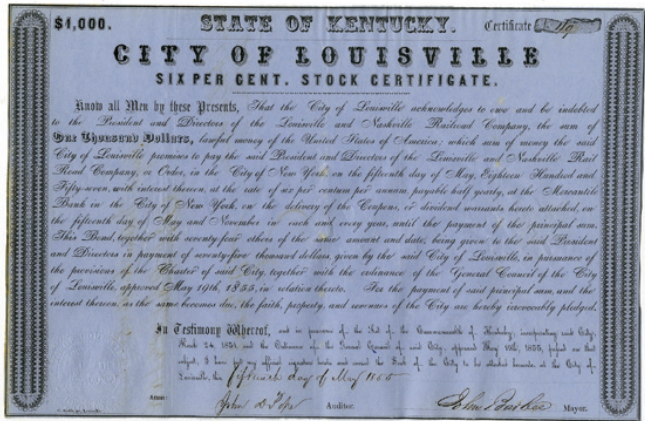 $1,000. STATE OF KENTUCKY. Certificate
CITY OF LOUISVILLE
SIX PER CENT. STOCK CERTIFICATE.
Know all Men by these Presents, That the City of Louisville acknowledges to owe and be indebted
to the President and Directors of the Louisville and Nashville Railroad Company, the sum of
One Thousand Dollars, lawful money of the United States of America; which sum of money the said
City of Louisville promises to pay the said President and Directors of the Louisville and Nashville Rail
Road Company, or Order, in the City of New York, on the fifteenth day of May, Eighteen Hundred and
Fifty-seven, with interest thereon, at the rate of six per centum per annum, payable half yearly, at the Mercantile
Bank in the City of New York, on the delivery of the Coupons, or dividend warrants hereto attached, on
the fifteenth day of May and November in each and every year, until the payment of the principal sum.
This Bond, together with seventy-four others of the same amount and date, being given to the said President
and Directors in payment of seventy-five thousand dollars, given by the said City of Louisville, in pursuance of
the provisions of the Charter of said City, together with the ordinance of the General Council of the City
of Louisville, approved May 19th, 1855, in relation thereto. For the payment of said principal sum, and the
interest thereon, as the same becomes due, the faith, property, and revenues of the City are hereby irrevocably pledged.
In Testimony Whereof, and in pursuance of the Act of the Commonwealth of Kentucky, incorporating said City,
March 24, 1851, and the Ordinance of the General Council of said City, approved May 19th, 1855, passed on that
subject, I have set my official signature hereto and caused the Seal of the City to be attached hereto, at the City of
Louisville, this fifteenth day of May 1855
Attest: John D Pope Auditor. John Barbee Mayor.